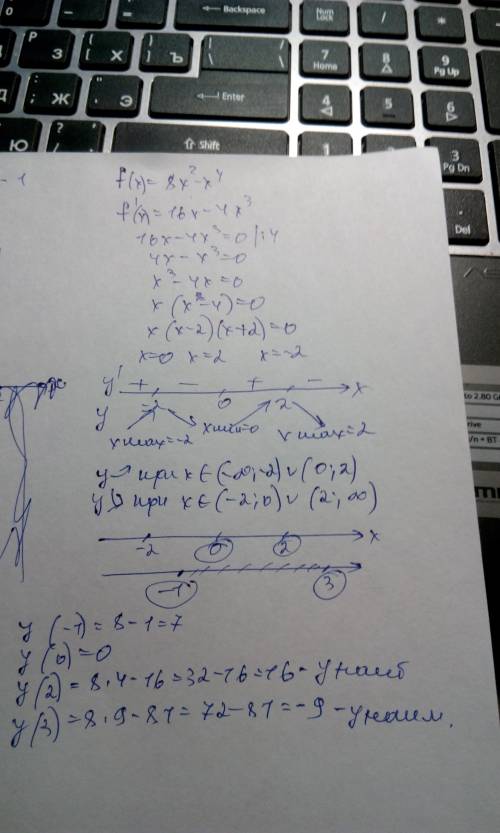 Backspace
Num Lock
/
*
Р
З
{ [ Х
} ] Ъ
|
\
/
7 Home
8
9 Pg Up
Д
: ; Ж
" ' Э
Enter
4
5
6
Ю
? /
Shift
1
3 Pg Dn
Del
- 1
f(x)= 8x²-x⁴
f'(x)=16x-4x³
16x-4x³=0 |:4
4x-x³=0
x³-4x=0
x(x²-4)=0
x(x-2)(x+2)=0
x=0 x=2 x=-2
y' + - + - x
-2 0 2
y
x max=-2 x min=0 x max=2
y ↗ при x∈(-∞;-2)∪(0;2)
y ↘ при x∈(-2;0)∪(2;∞)
-2 0 2 x
-1 3
y(-1)=8-1=7
y(0)=0
y(2)=8·4-16=32-16=16-y наиб
y(3)=8·9-81=72-81=-9-y наим.
to 2.80 G
/n + BT